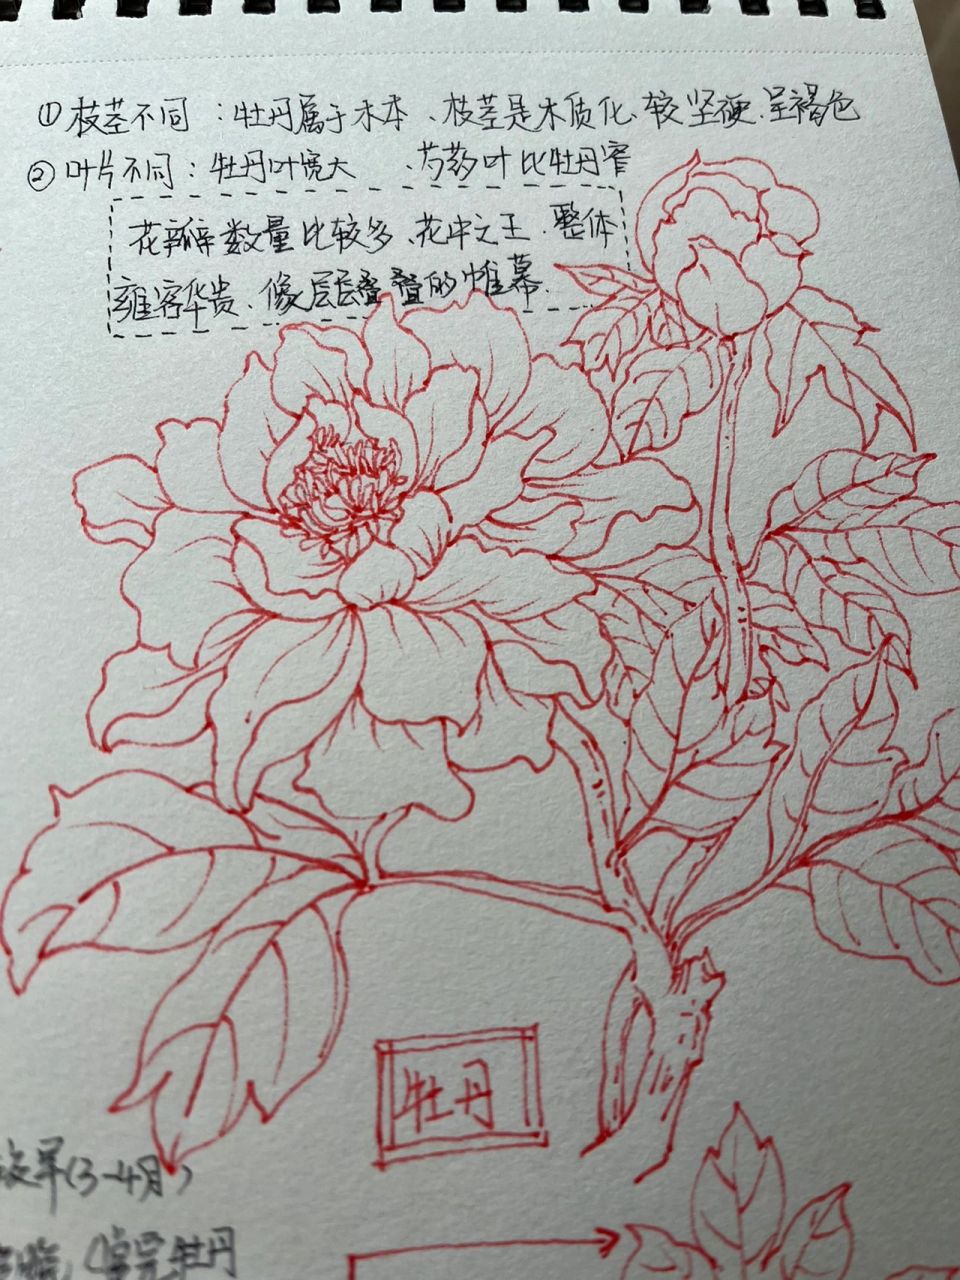 ①枝茎不同：牡丹属于木本、枝茎是木质化、较坚硬、呈褐色
②叶片不同：牡丹叶宽大、芍药叶比牡丹窄
花瓣数量比较多、花中之王、整体
雍容华贵、像层层叠叠的帷幕.
牡丹
较早(3-4月)
牡丹